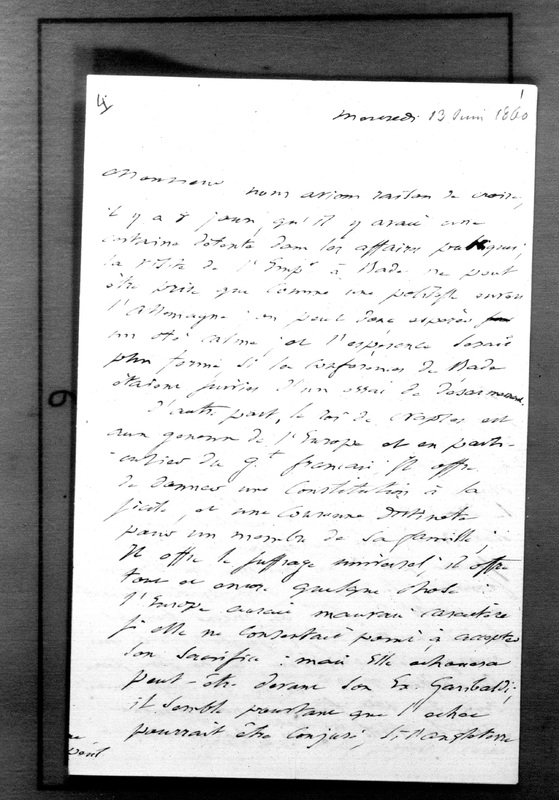 Mercredi 13 Juin 1860
Monsieur nous avions raison de croire,
il y a 8 jours, qu'il y avait une
certaine détente dans les affaires politiques;
la visite de l'Empr à Bade ne peut
être prise que comme une politesse envers
l'Allemagne: on peut donc espérer
un été calme; et l'espérance serait
plus ferme si les conférences de Bade
étaient suivies d'un essai de désarmement.
D'autre part, le roi de Naples est
aux genoux de l'Europe et en parti-
-culier du gt français. Il offre
de donner une Constitution à la
Sicile, et une Couronne distincte
pour un membre de sa famille;
Il offre le suffrage universel; il offre
tout et encore quelque chose:
l'Europe aurait mauvais caractère
si elle ne consentait pas à accepter
son sacrifice: mais Elle échouera
peut-être devant son Ex. Garibaldi;
il semble pourtant que l'échec
pourrait être conjuré, si l'Angleterre